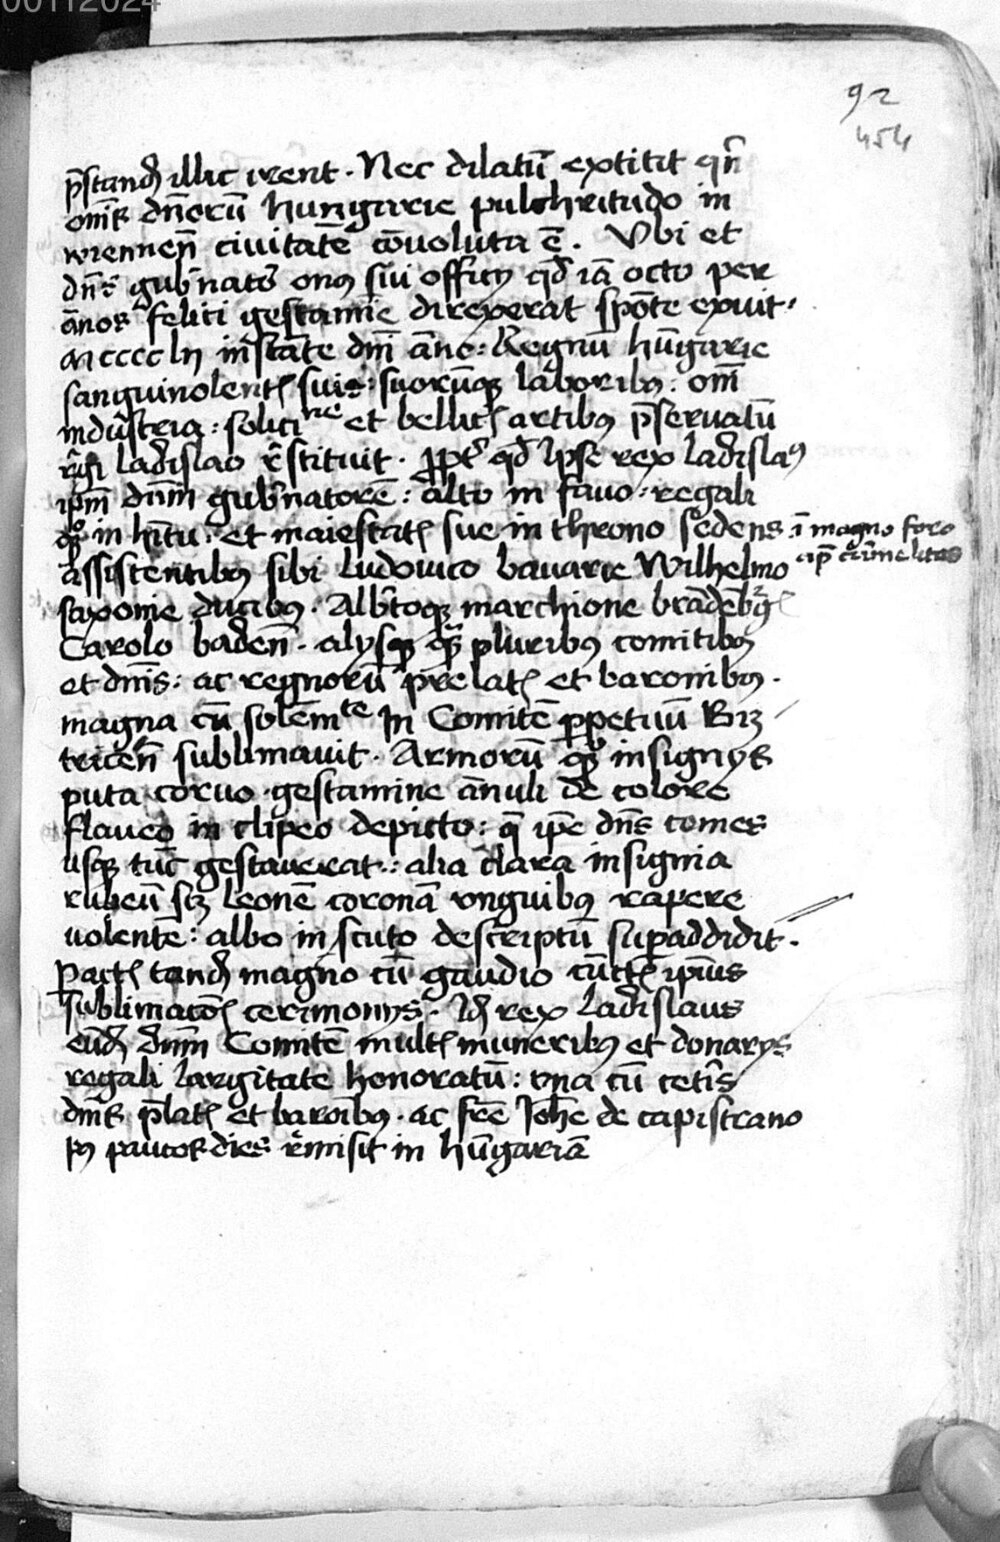 00112024
92
454
p̄standꝫ illic irent. Nec dilatū extitit qn̄
om̄iꝝ dn̄orū hungarie pulchritudo in
wiennen̄ ciuitatē cōuoluta ē. Vbi et
dn̄s gub̄nator onꝰ sui officy qd̄ iā octo per
ānos feliti gestamīe direxerat spōte exuit.
Mcccclii instāte dn̄i āno: Regnū hūgarie
sanguinolentꝭ suis: suorūqꝫ laboribꝰ: om̄i
industria: solicine et bellicꝭ artibꝰ p̄seruatū
r̄gi ladislao r̄stituit. ꝓpt̄ qd̄ ip̄se rex ladislaꝰ
ip̄m dn̄m gub̄natorē: alto in fauo: regali
qꝫ in hītu: et maiestatꝭ sue in throno sedens: ī magno foro
ap̄ carmelitas
assistentibꝰ sibi ludouico bauarie Wilhelmo
saxonie ducibꝰ. Alb̄toqꝫ marchione brādēb̄gꝭ
Carolo baden̄. alysqꝫ qꝫ pluribꝰ comitibꝰ
et dn̄is: ac regnorū prelatꝭ et baronibꝰ.
magna cū solēmte In Comitē ꝑpetuū Biz
tricen̄ sublimauit. Armorū qꝫ insignys
puta coruo gestamine ānuli de colore
flaueo in clipeo depicto: q̄ ip̄e dn̄s comes
usqꝫ tūc gestauerat: alia clara insignia
rubeū scꝫ leonē coronā vnguibꝰ rapere
uolentē: albo in scuto descriptū suꝑaddidit.
Pactꝭ tandꝫ magno cū gaudio cūctꝭ ip̄ius
sublimacōꝭ cerimonys. Idꝫ rex ladislaus
eūdꝫ dn̄m Comitē multꝭ muneribꝰ et donarys
regali largitate honoratū: vna cū cetīs
dn̄iꝝ p̄latꝭ et baroībꝰ. ac fr̄e Joh̄e de capistrano
pꝰ paucos dies r̄misit in hūgariā